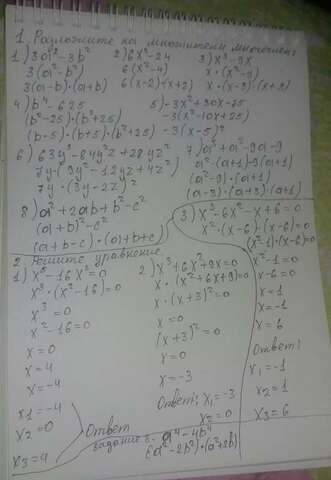 1. Разложите на множители многочлен
1) 3a²-3b²
3(a²-b²)
3(a-b)·(a+b)
2) 6x²-24
6(x²-4)
6(x-2)·(x+2)
3) x³-9x
x·(x²-9)
x·(x-3)·(x+3)
4) b⁴-625
(b²-25)·(b²+25)
(b-5)·(b+5)·(b²+25)
5) -3x²+30x-75
-3(x²-10x+25)
-3(x-5)²
6) 63y³-84y²z+28yz²
7y·(9y²-12yz+4z²)
7y·(3y-2z)²
7) a³+a²-9a-9
a²·(a+1)-9(a+1)
(a²-9)·(a+1)
(a-3)·(a+3)·(a+1)
8) a²+2ab+b²-c²
(a+b)²-c²
(a+b-c)·(a+b+c)
2. Решите уравнение
1) x⁵-16x³=0
x³·(x²-16)=0
x³=0
x²-16=0
x=0
x=4
x=-4
x₁=-4
x₂=0
x₃=4
Ответ
2) x³+6x²+9x=0
x·(x²+6x+9)=0
x·(x+3)²=0
x=0
(x+3)²=0
x=0
x=-3
Ответ: x₁=-3
x₂=0
3) x³-6x²-x+6=0
x²·(x-6)-(x-6)=0
(x²-1)·(x-6)=0
x²-1=0
x-6=0
x=1
x=-1
x=6
Ответ:
x₁=-1
x₂=1
x₃=6
задание 3. a⁴-4b⁴
(a²-2b²)·(a²+2b²)